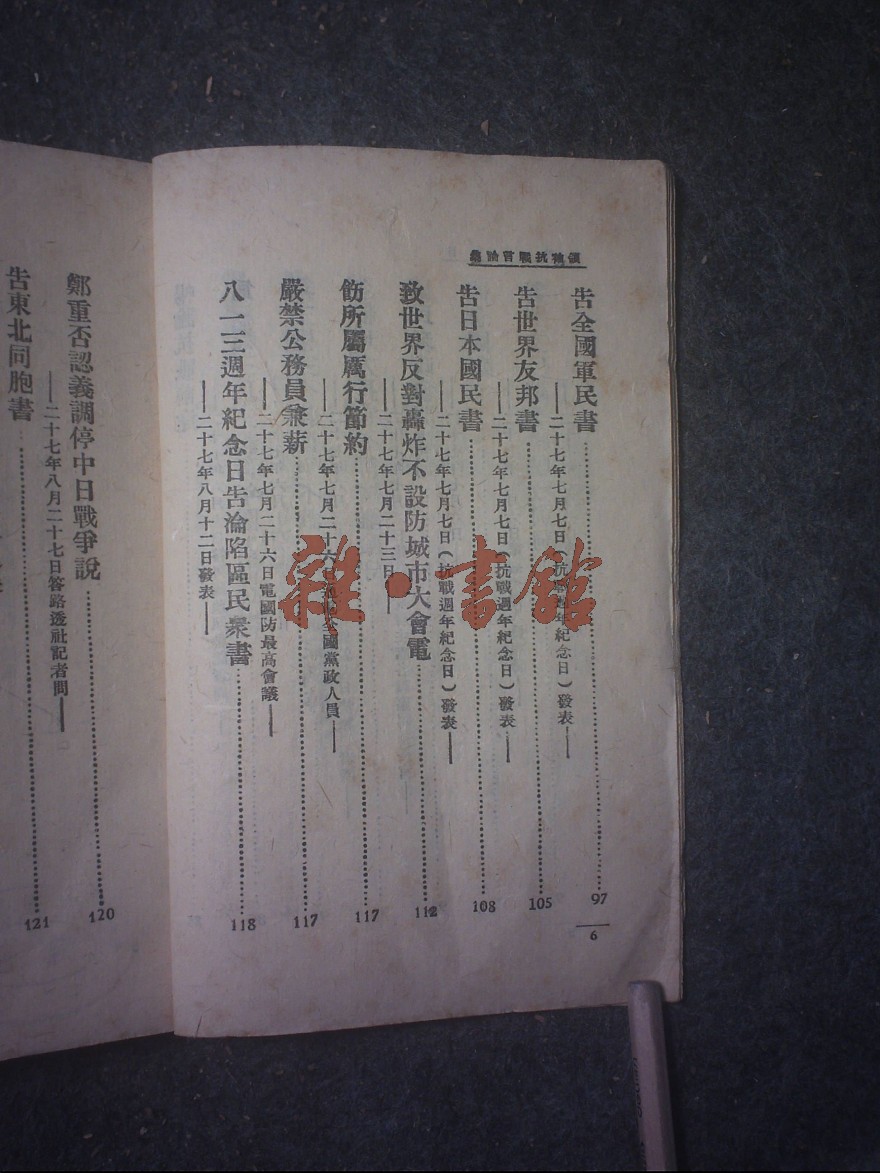 領袖抗戰言論集
告全國軍民書
97
——二十七年七月七日(抗戰週年紀念日)發表——
告世界友邦書
105
——二十七年七月七日(抗戰週年紀念日)發表——
告日本國民書
108
——二十七年七月七日(抗戰週年紀念日)發表——
致世界反對轟炸不設防城市大會電
112
——二十七年七月二十三日——
飭所屬厲行節約
117
——二十七年七月二十六日 全國黨政人員——
嚴禁公務員兼薪
117
——二十七年七月二十六日電國防最高會議——
八一三週年紀念日告淪陷區民衆書
118
——二十七年八月十二日發表——
6
鄭重否認義調停中日戰爭說
120
——二十七年八月二十七日答路透社記者問——
告東北同胞書
121
雜·書館